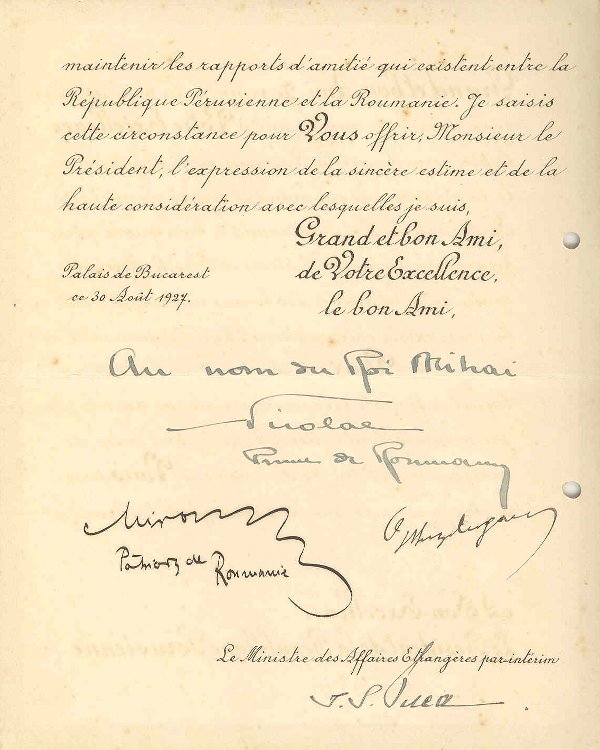 maintenir les rapports d'amitié qui existent entre la
République Péruvienne et la Roumanie. Je saisis
cette circonstance pour Vous offrir, Monsieur le
Président, l'expression de la sincère estime et de la
haute considération avec lesquelles je suis,
Grand et bon Ami,
de Votre Excellence,
le bon Ami,
Palais de Bucarest
ce 30 Août 1927.
Au nom du Roi Mihai
Nicolae
Prince de Roumanie
Miron
Patriarche de
Roumanie
Le Ministre des Affaires Etrangères par interim